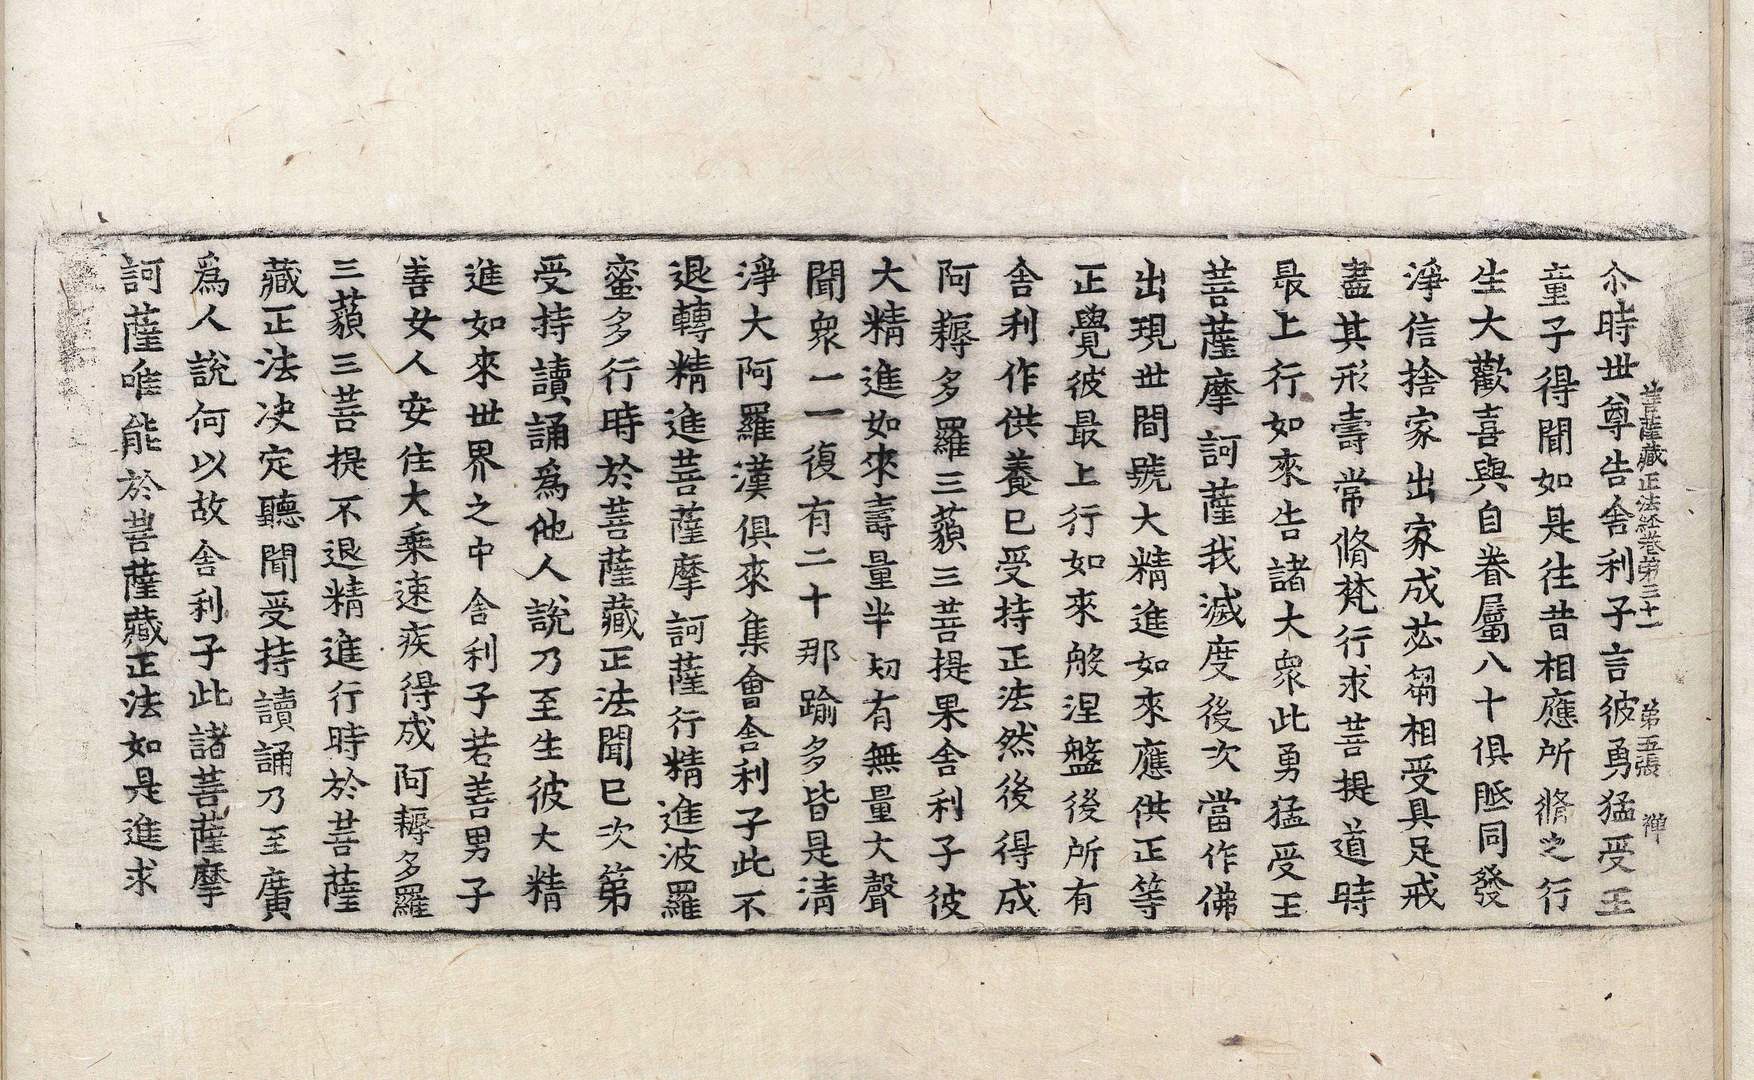 菩薩藏正法經卷第三十一 第五張 禪
尒時世尊告舍利子言彼勇猛受王
童子得聞如是往昔相應所脩之行
生大歡喜與自眷屬八十俱胝同發
淨信捨家出家成苾芻相受具足戒
盡其形壽常脩梵行求菩提道時
最上行如來告諸大衆此勇猛受王
菩薩摩訶薩我滅度後次當作佛
出現世間號大精進如來應供正等
正覺彼最上行如來般涅盤後所有
舍利作供養已受持正法然後得成
阿耨多羅三藐三菩提果舍利子彼
大精進如來壽量半刧有無量大聲
聞衆一一復有二十那踰多皆是清
淨大阿羅漢俱來集會舍利子此不
退轉精進菩薩摩訶薩行精進波羅
蜜多行時於菩薩藏正法聞已次第
受持讀誦爲他人說乃至生彼大精
進如來世界之中舍利子若善男子
善女人安住大乘速疾得成阿耨多羅
三藐三菩提不退精進行時於菩薩
藏正法决定聽聞受持讀誦乃至廣
爲人說何以故舍利子此諸菩薩摩
訶薩唯能於菩薩藏正法如是進求